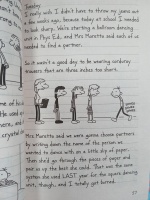 Tuesday
I really wish I didn't have to throw my jeans out
two weeks ago, because today at school I needed
to look sharp. We're starting a ballroom dancing
unit in Phys Ed., and Mrs. Moretta said each of us
needed to find a partner.
So it wasn't a good day to be wearing corduroy
trousers that are three inches too short.
Mrs. Moretta said we were gonna choose partners
by writing down the name of the person we
wanted to dance with on a little slip of paper.
Then she'd go through the pieces of paper and
pair us up the best she could. That was the same
system she used LAST year for the square dancing
unit, though, and I totally got burned.
37